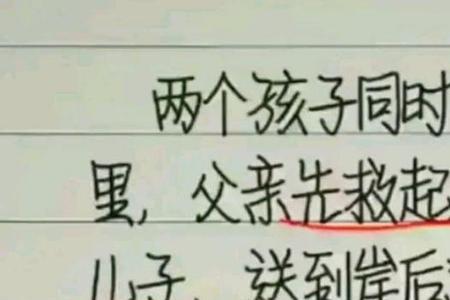 两个孩子同时
里，父亲先救起
儿子，送到岸后